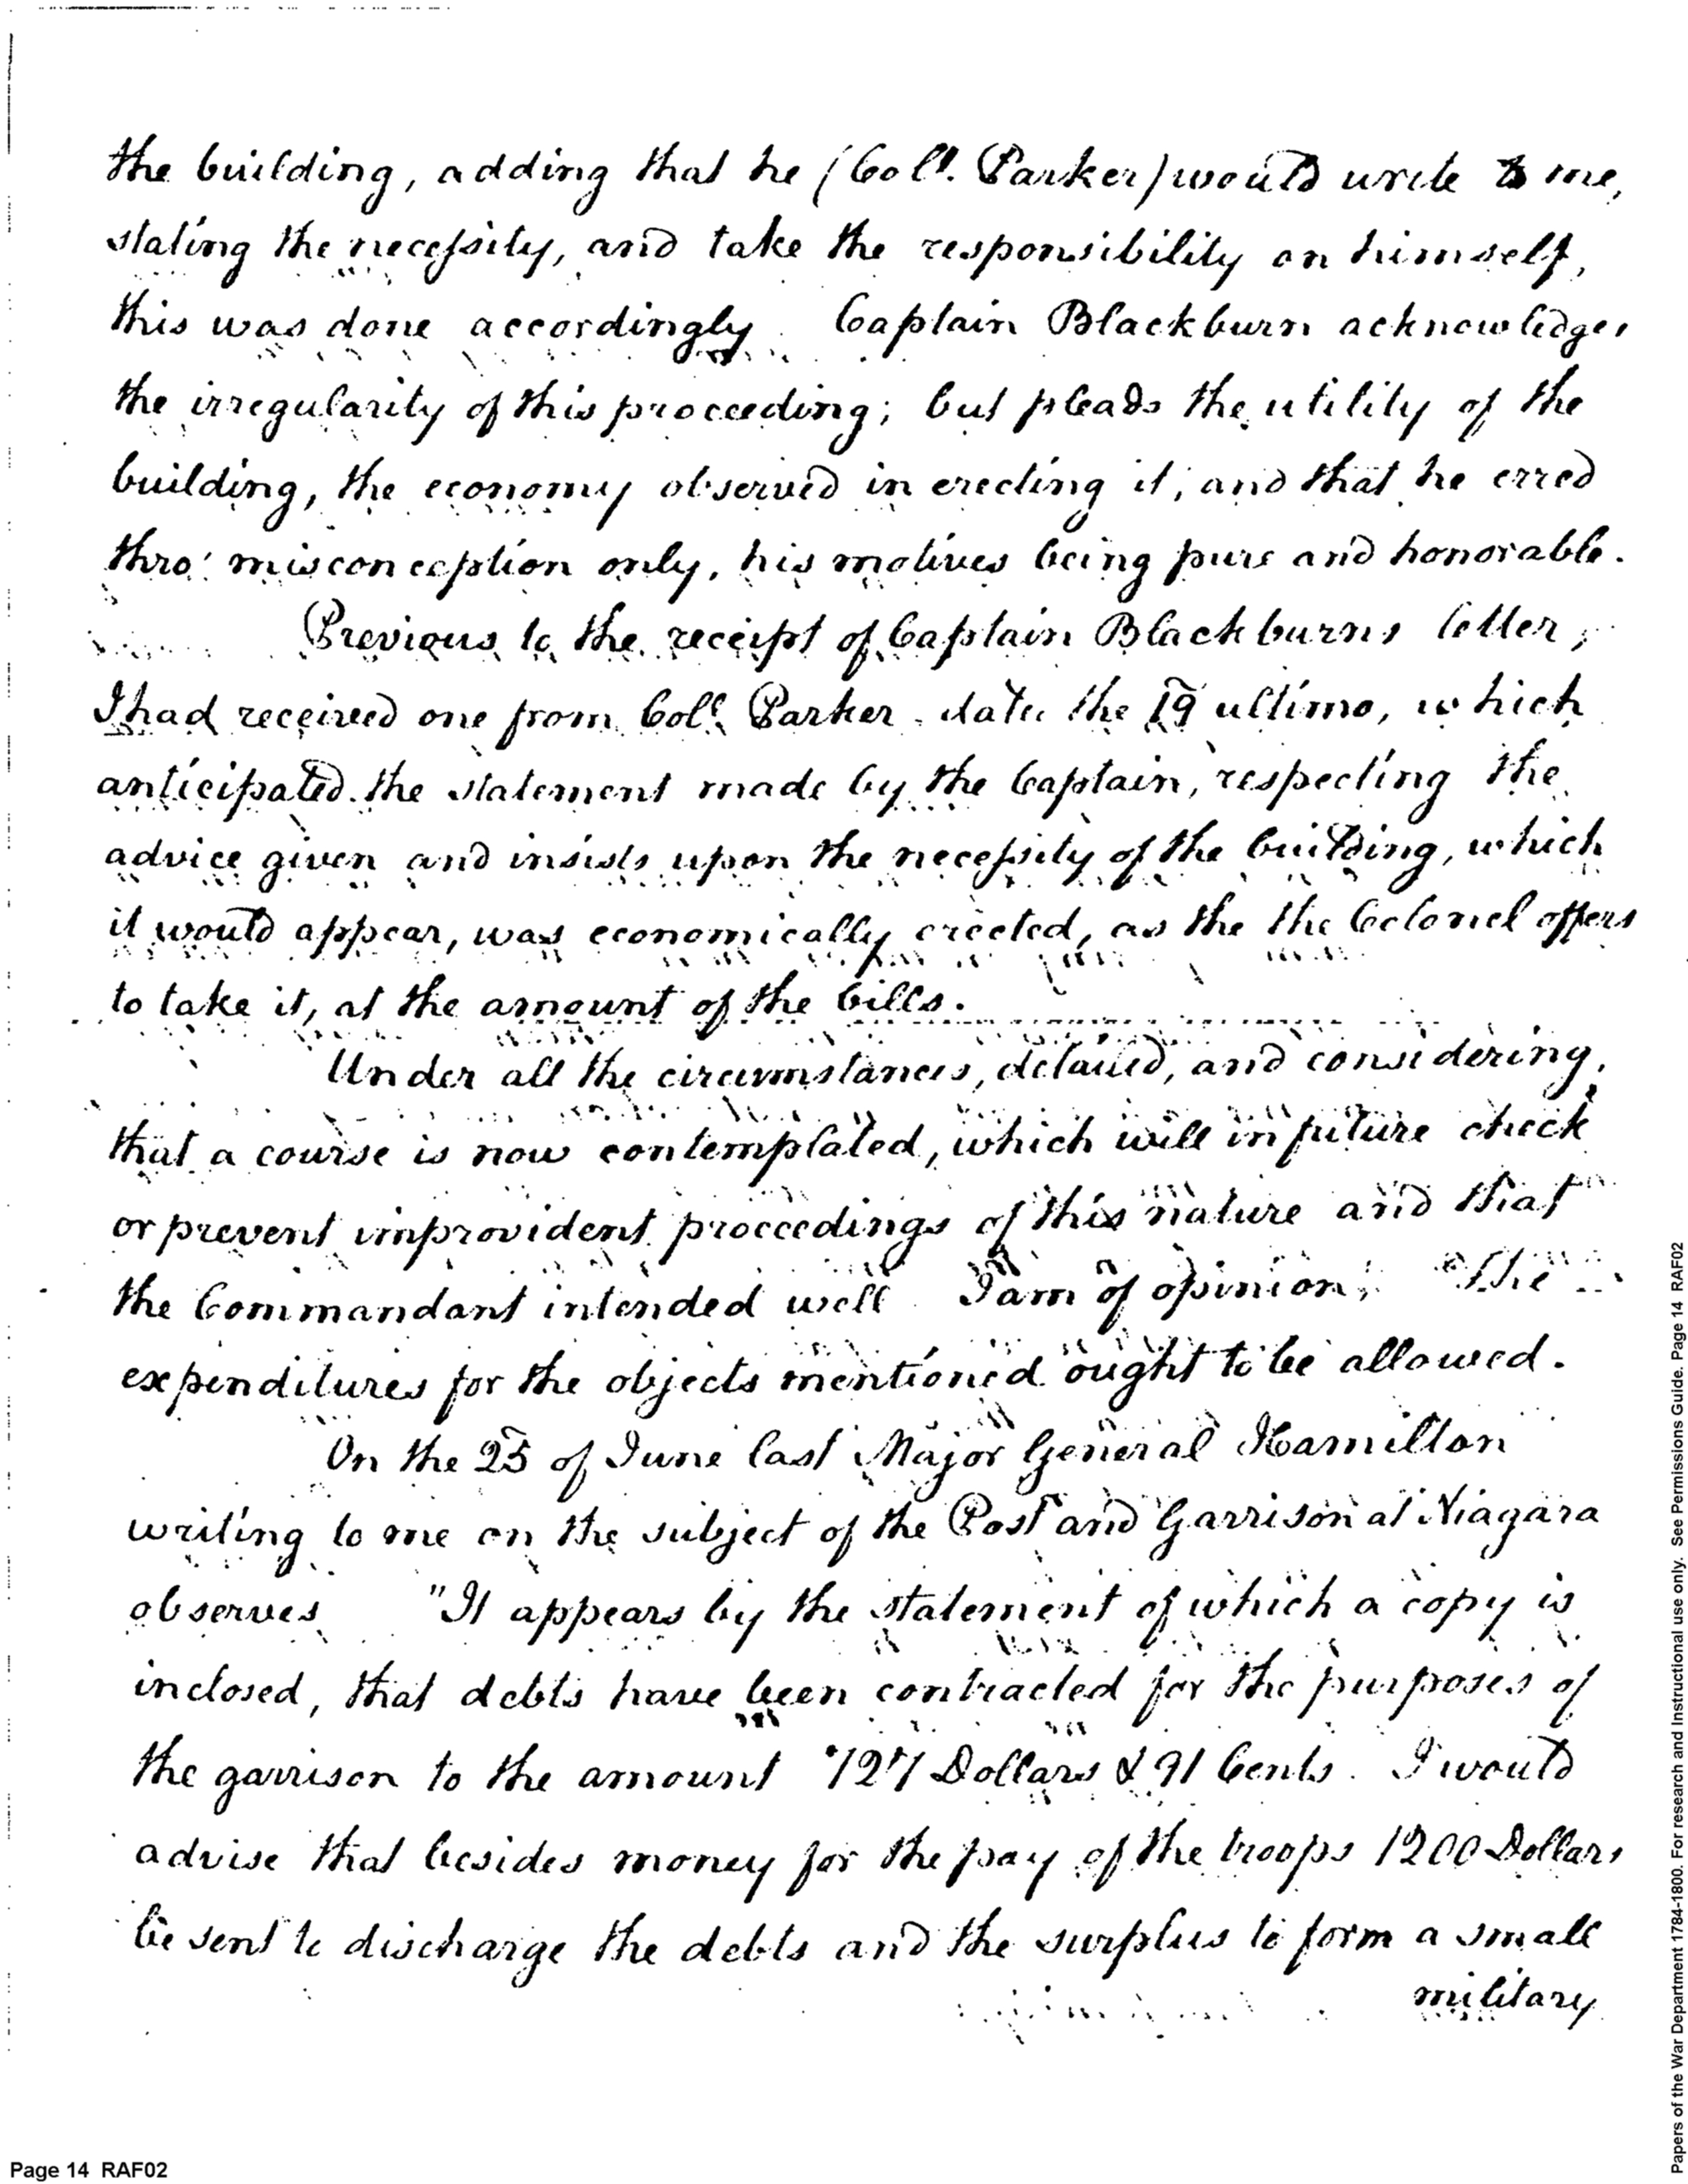 the building, adding that he (Coll. Parker) would write to me,
stating the necessity, and take the responsibility on himself,
this was done accordingly. Captain Blackburn acknowledges
the irregularity of this proceeding; but pleads the utility of the
building, the economy observed in erecting it, and that he erred
thro' misconception only, his motives being pure and honorable.
Previous to the receipt of Captain Blackburns letter,
I had received one from Coll. Parker date the 19 ultimo, which
anticipated the statement made by the Captain, respecting the
advice given and insists upon the necessity of the building, which
it would appear, was economically erected, as the the Colonel offers
to take it, at the amount of the bills.
Under all the circumstances, detailed, and considering,
that a course is now contemplated, which will in future check
or prevent improvident proceedings of this nature and that
the Commandant intended well. I am of opinion, The
expenditures for the objects mentioned ought to be allowed.
On the 25 of June last Major General Hamilton
writing to me on the subject of the Post and Garrison at Niagara
observes "It appears by the statement of which a copy is
inclosed, that debts have been contracted for the purposes of
the garrison to the amount 727 Dollars & 91 Cents. I would
advise that besides money for the pay of the troops 1200 Dollars
be sent to discharge the debts and the surplus to form a small
military
Page 14 RAF02
Papers of the War Department 1784-1800. For research and instructional use only. See Permissions Guide. Page 14 RAF02